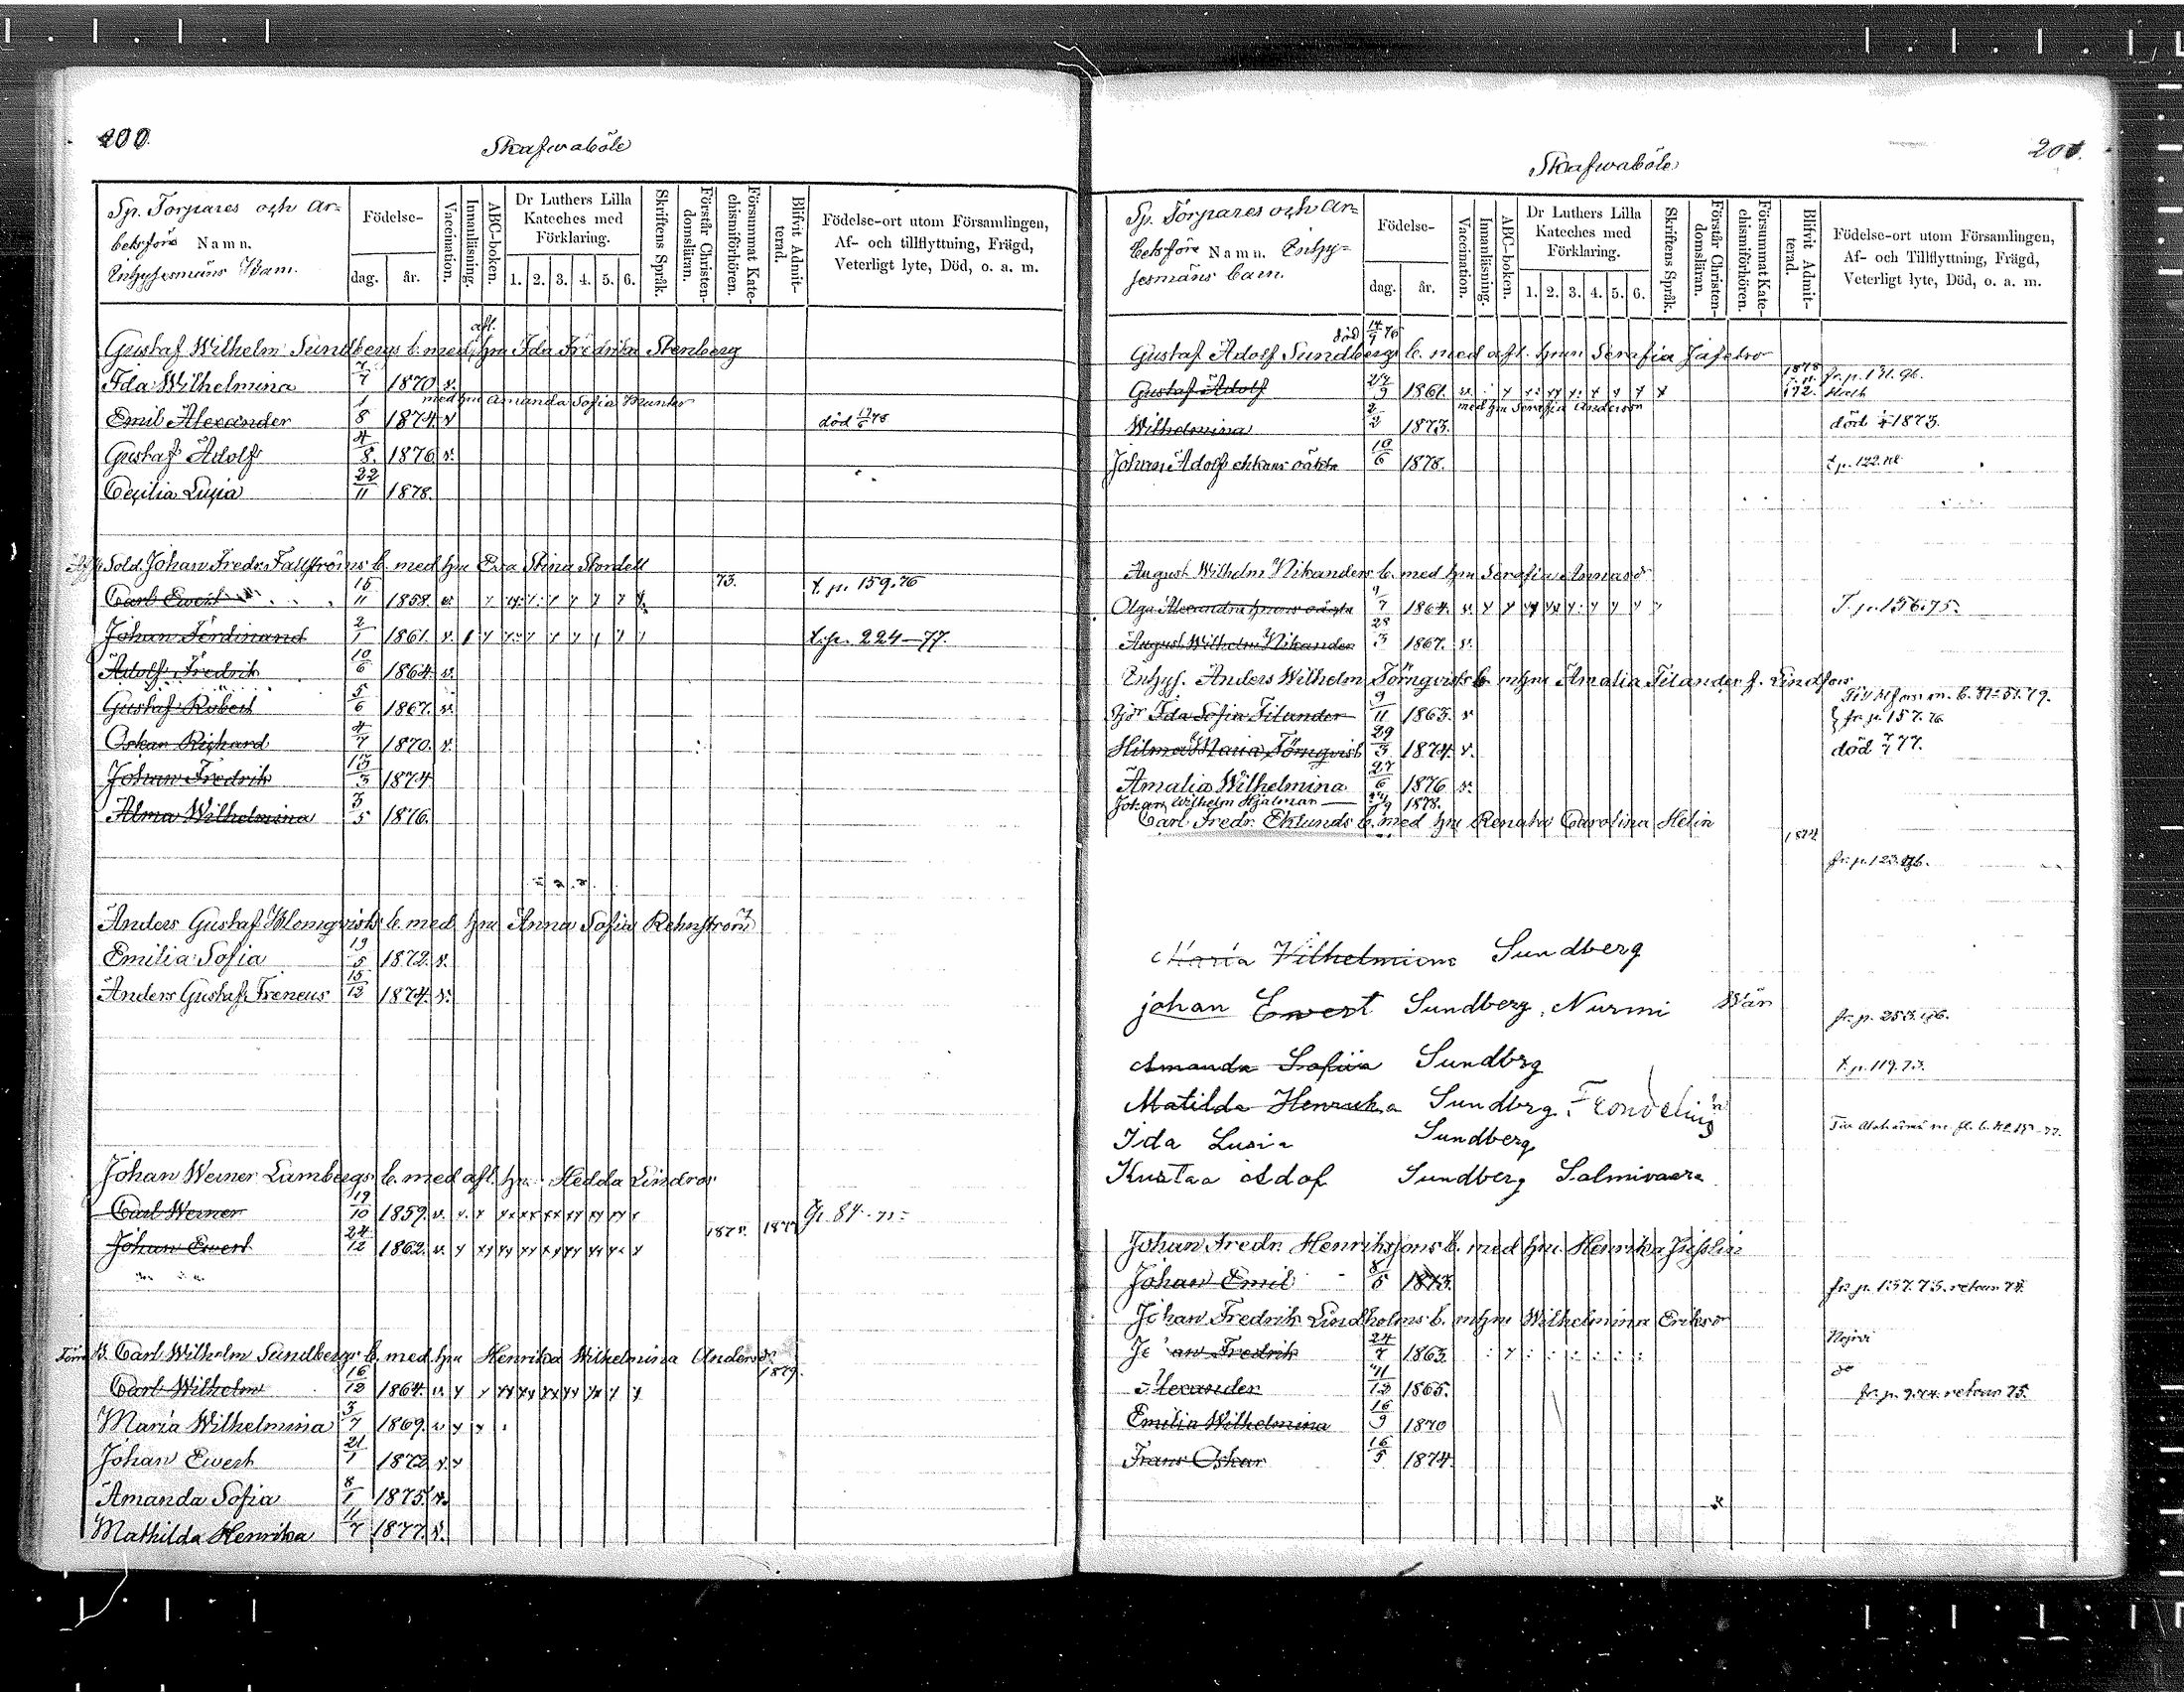 200.
Skafwaböle
Sp. Torpares och ar-
betsföre Namn.
Inhysesmäns Barn.
Födelse-
dag. år.
Vaccination.
Innanläsning.
ABC-boken.
Dr Luthers Lilla
Kateches med
Förklaring.
1. 2. 3. 4. 5. 6.
Skriftens Språk.
Förstår Christen-
domsläran.
Försummat Kate-
chismiförhören.
Blifvit Admit-
terad.
Födelse-ort utom Församlingen,
Af- och tillflyttning, Frägd,
Veterligt lyte, Död, o. a. m.
afl.
Gustaf Wilhelm Sundbergs b. med hu Ida Fredrika Stenberg
Ida Wilhelmina 7/7 1870. v.
med hu Amanda Sofia Munter
Emil Alexander 1/8 1874. v död
Gustaf Adolf 4/8. 1876 v.
Cecilia Lusia 22/11 1878.
Sold. Johan Fredr. Fallströms b. med hu Eva Stina Stordell
Carl Ewert 15/11 1858. v. 73. t. p. 159. 76
Johan Ferdinand 2/1 1861. v. t. p. 224-77.
Adolf Fredrik 10/6 1864. v.
Gustaf Robert 5/6 1867. v.
Oskar Richard 4/7 1870. v.
Johan Fredrik 13/3 1874
Alma Wilhelmina 3/5 1876.
Anders Gustaf Blomqvists b. med hu Anna Sofia Rehnström
Emilia Sofia 19/5 1872. v.
Anders Gustaf Ireneus 15/12 1874. v.
Johan Werner Lambergs b. med afl. hu Hedda Lindros
Carl Werner 19/10 1859. v.
Johan Ewert 24/12 1862. v.
B. Carl Wilhelm Sundbergs b. med hu Henrika Wilhelmina Andersdr
1879.
Carl Wilhelm 16/12 1864. v.
Maria Wilhelmina 3/7 1869. v
Johan Ewert 21/1 1872 v.
Amanda Sofia 8/1 1875. v.
Mathilda Henrika 11/7 1877. v.
201.
Skafwaböle
Sp. Torpares och ar-
betsföre Namn. Inhy-
sesmäns barn.
Födelse-
dag. år.
Vaccination.
Innanläsning.
ABC-boken.
Dr Luthers Lilla
Kateches med
Förklaring.
1. 2. 3. 4. 5. 6.
Skriftens Språk.
Förstår Christen-
domsläran.
Försummat Kate-
chismiförhören.
Blifvit Admit-
terad.
Födelse-ort utom Församlingen,
Af- och Tillflyttning, Frägd,
Veterligt lyte, Död, o. a. m.
död 76
Gustaf Adolf Sundbergs b. med afl. hun Serafia
Gustaf Adolf 27/9 1861. v. 1878 fr. p. 131.
med hu Serafia Anderson
Wilhelmina 2/2 1873. död 1873.
Johan Adolf enkans oäkta 10/6 1878. t. p. 122.
August Wilhelm Nikanders b. med hu Serafia Annasdr
Olga Alexandra hans oäkta 7 1864. v. T. p. 156. 75.
August Wilhelm Nikander 28/3 1867. v.
Inhys. Anders Wilhelm Törnqvists b. m hu Amalia Tilander f. Lindfors
Ida Sofia Tilander 9/11 1863. v fr. p. 157. 76
Hilma Maria Törnqvist 29/3 1874. v. död 7/7 77.
Amalia Wilhelmina 27/6 1876 v.
Johan Wilhelm Hjalmar 1878.
Carl Fredr. Eklunds b. med hu Renata Carolina Helin
fr. p. 123.
Maria Vilhelmiina Sundberg
johan Ewert Sundberg, Nurmi Wän
fr. p. 253.
Amanda Sofiia Sundbrg
t. p. 119. 73.
Matilda Henrika Sundbrg Frondelius
Iida Lusia Sundberg
Kustaa Adof Sundberg Salmivaara
Johan Fredr. Henrikssons b. med hu Henrika
Johan Emil 8/5 1873. fr. p. 137. 73. retour 74.
Johan Fredrik Lindholms b. m hu Wilhelmina Eriksdr
Johan Fredrik 24/7 1863. Nojvi
Alexander 12 1865. do fr. p. 9. 74. retour 75.
Emilia Wilhelmina 16/9 1870
Frans Oskar 16/5 1874.